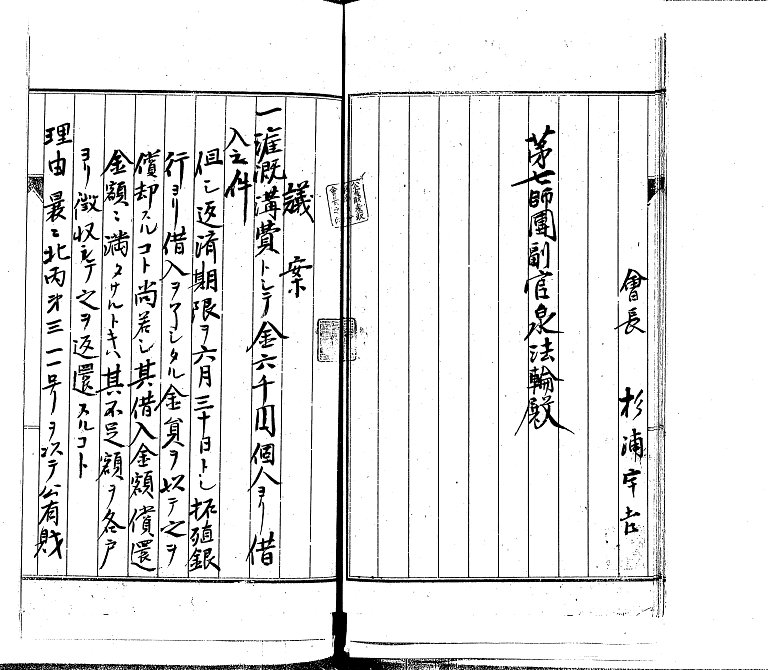 會長 杉浦宇吉
第七師團副官泉法輪殿
議案
一灌漑溝費トシテ金六千円個人ヨリ借
入之件
但シ返済期限ヲ六月三十日トシ拓殖銀
行ヨリ借入ヲアシタル金員ヲ以テ之ヲ
償却スルコト尚若シ其借入金額償還
金額ニ満タサルトキハ其不足額ヲ各戸
ヨリ徴収シテ之ヲ返還スルコト
理由 曩ニ北丙第三一一号ヲ以テ公有財